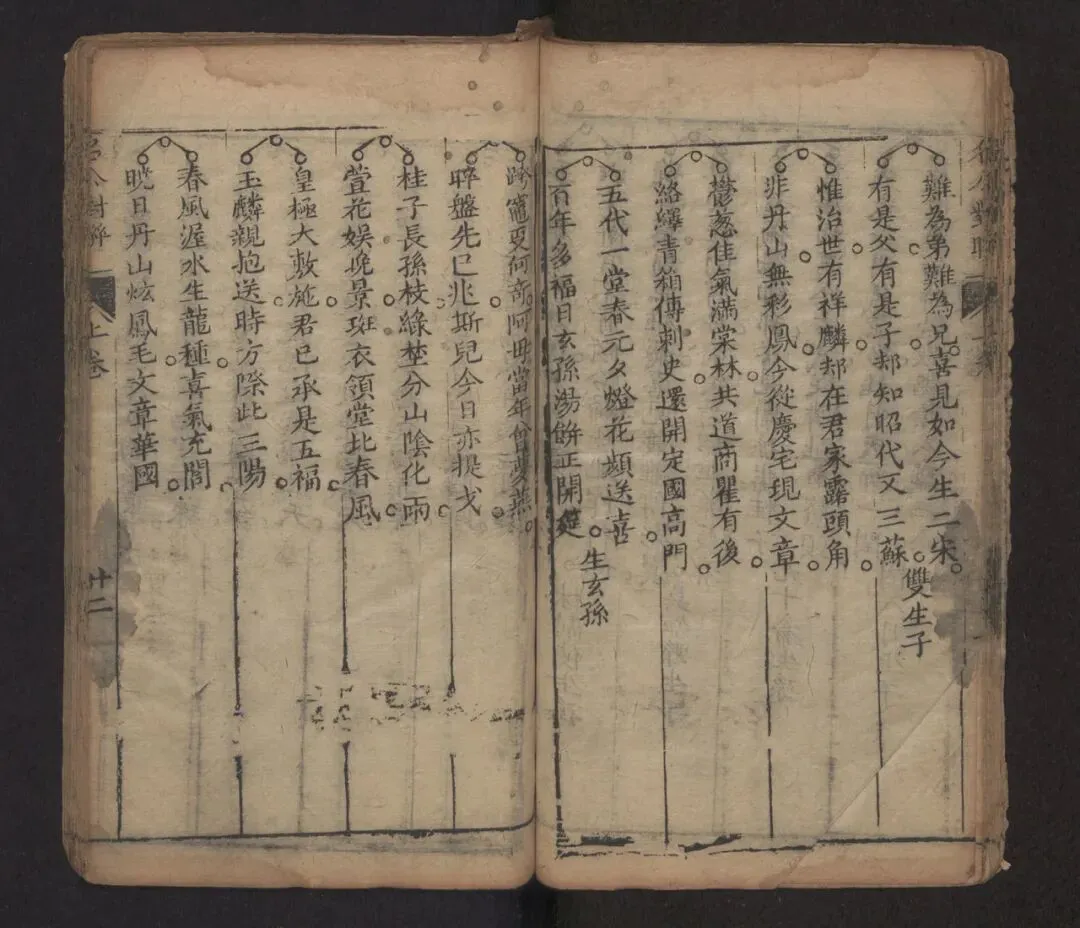 難為弟難為兄喜見如今生二宋
有是父有是子却知昭代又三蘇
雙生子
惟治世有祥麟却在君家露頭角
非丹山無彩鳳今從慶宅現文章
鬱葱佳氣滿棠林共道商瞿有後
絡繹青箱傳刺史還開定國高門
五代一堂春元夕燈花頻送喜
百年多福日玄孫湯餅正開筵
生玄孫
跨竈夏何奇阿母當年曾夢燕
晬盤先已兆斯兒今日亦提戈
桂子長孫枝綠埜分山陰化雨
萱花娛晚景斑衣領堂北春風
皇極大敷施君已承是五福
玉麟親抱送時方際此三陽
春風渥水生龍種喜氣充閭
曉日丹山炫鳳毛文章華國
上卷
十二